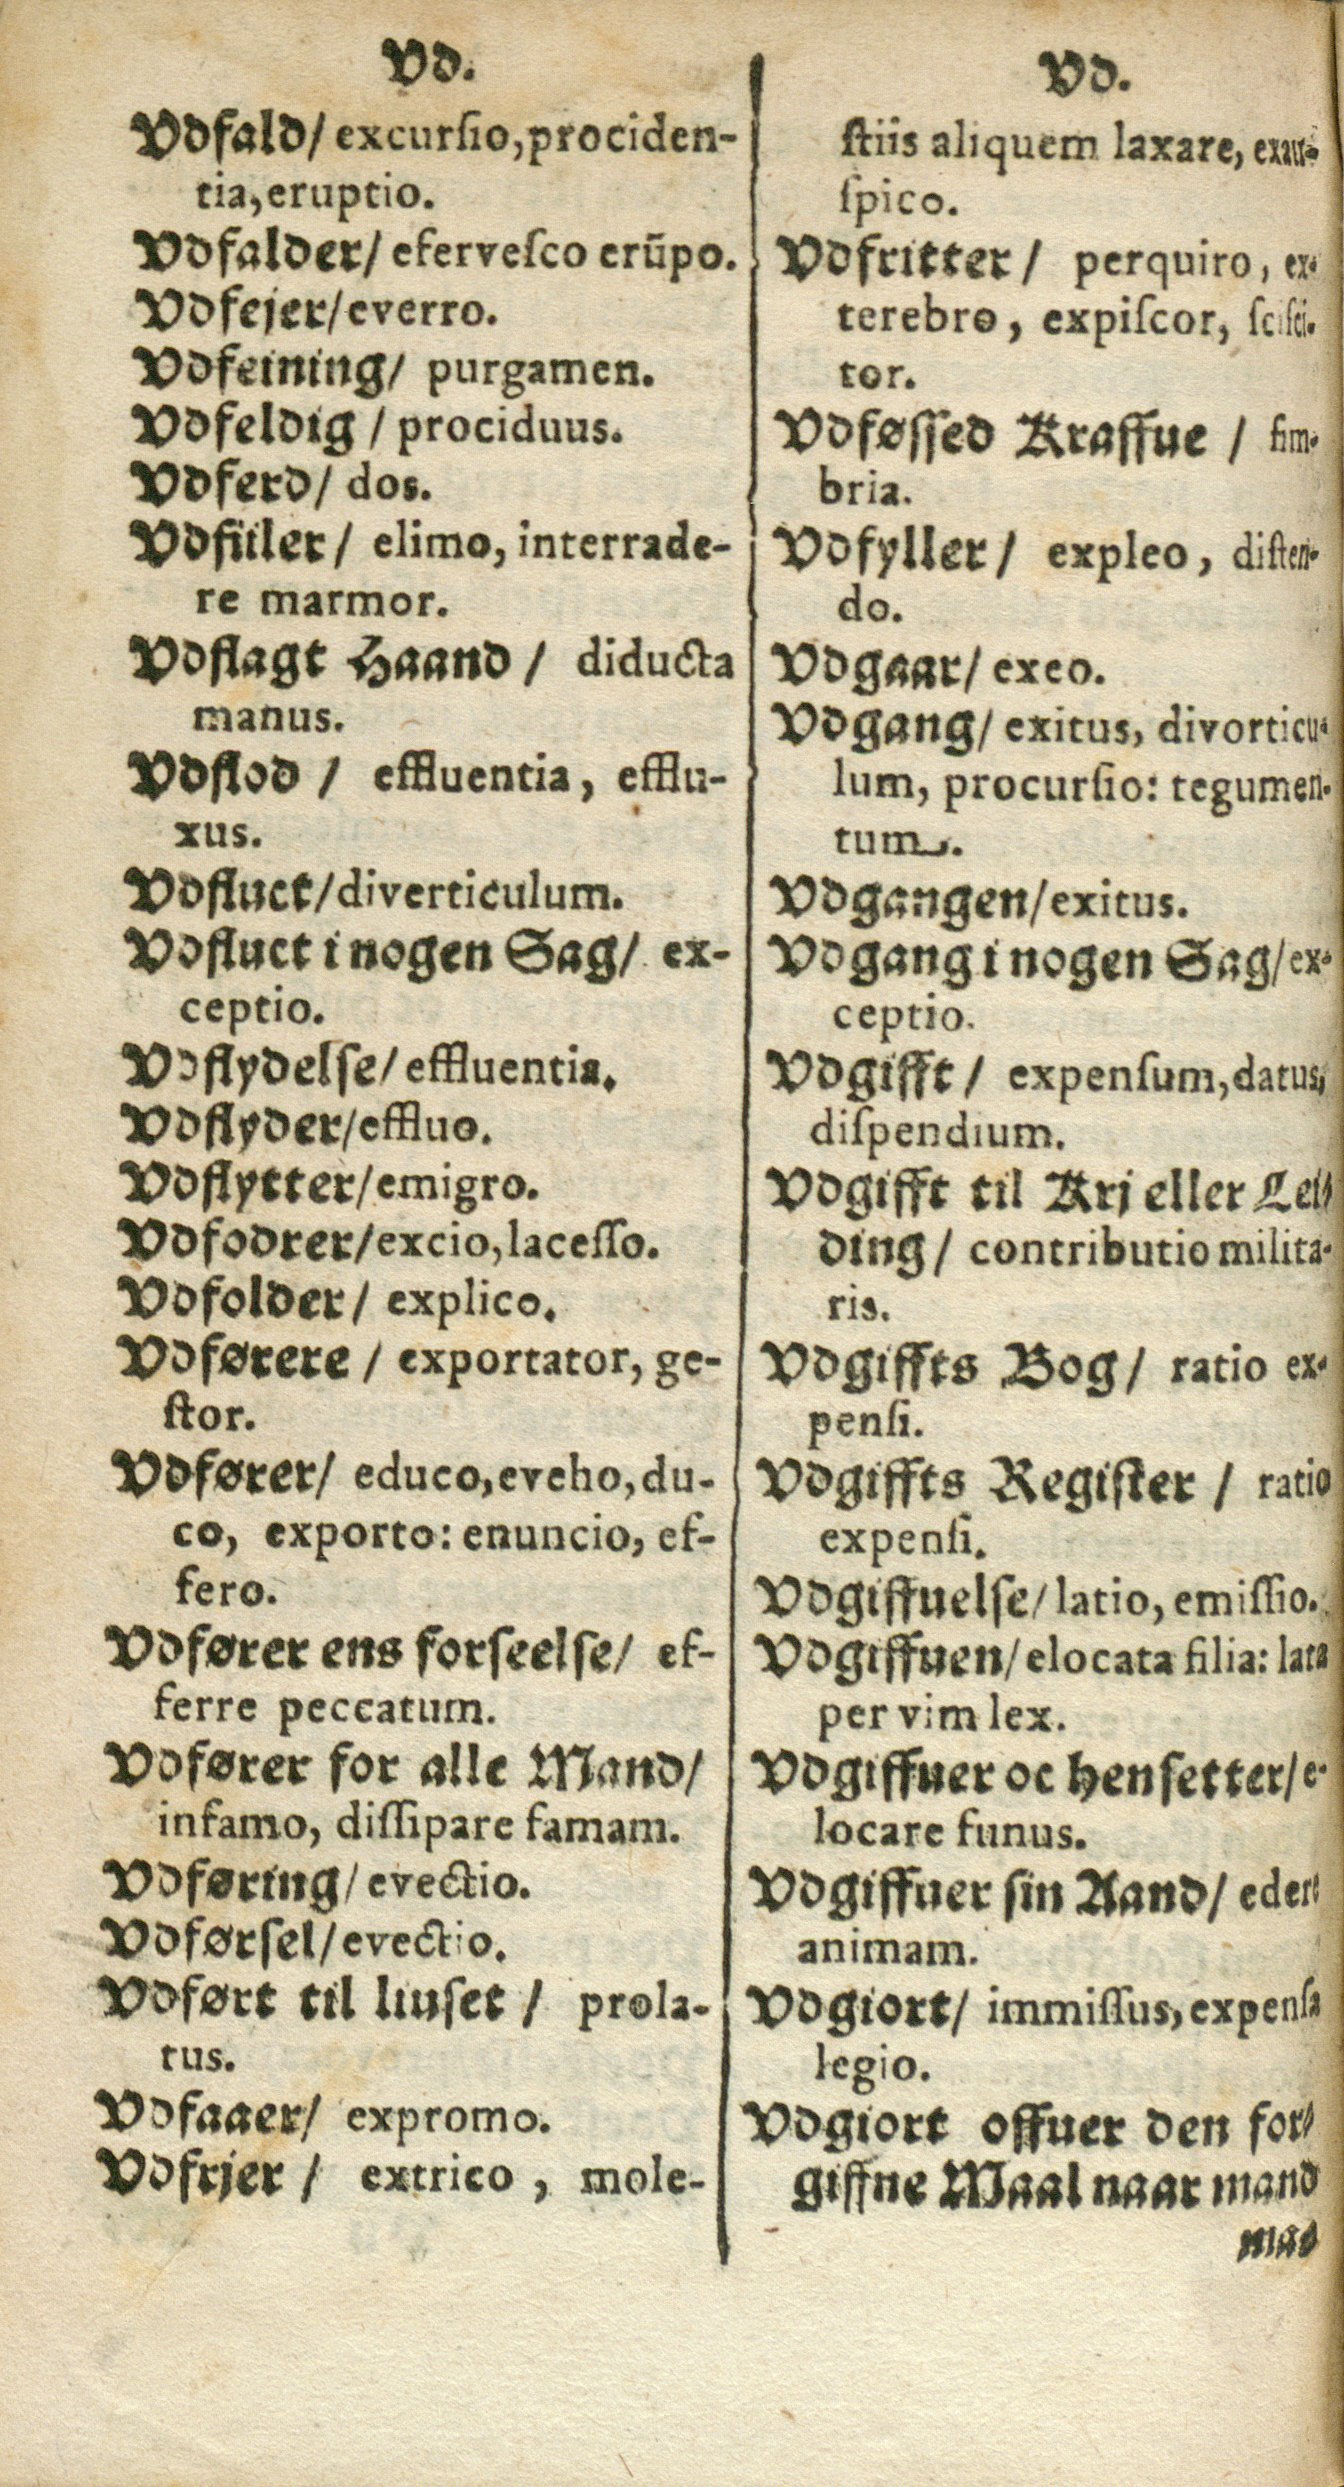 Vd.
Vdfald/ excurſio, prociden-
tia, eruptio.
Vdfalder/ eferveſco erūpo.
Vdfejer/ everro.
Vdfeining/ purgamen.
Vdfeldig / prociduus.
Vdferd/ dos.
Vdfiiler/ elimo, interrade-
re marmor.
Vdflagt Haand / diducta
manus.
Vdflod / effluentia, efflu-
xus.
Vdfluct/ diverticulum.
Vdfluct i nogen Sag/ ex-
ceptio.
Vdflydelſe/ effluentia.
Vdflyder/ effluo.
Vdflytter/ emigro.
Vdfodrer/ excio, laceſſo.
Vdfolder/ explico.
Vdførere / exportator, ge-
ſtor.
Vdfører/ educo, eveho, du-
co, exporto: enuncio, ef-
fero.
Vdfører ens forſeelſe/ ef-
ferre peccatum.
Vdfører for alle Mand/
infamo, diſſipare famam.
Vdføring/ evectio.
Vdførſel/ evectio.
Vdført til liuſet / prola-
tus.
Vdfaaer/ expromo.
Vdfrjer / extrico, mole-
Vd.
ſtiis aliquem laxare, exau-
ſpico.
Vdfritter / perquiro, ex-
terebro, expiſcor, ſciſci-
tor.
Vdføſſed Kraffue / fim-
bria.
Vdfyller / expleo, diſten-
do.
Vdgaar/ exeo.
Vdgang/ exitus, divorticu-
lum, procurſio: tegumen-
tum.
Vdgangen/ exitus.
Vdgang i nogen Sag/ ex-
ceptio.
Vdgifft / expenſum, datus,
diſpendium.
Vdgifft til Krj eller Lei-
ding / contributio milita-
ris.
Vdgiffts Bog/ ratio ex-
penſi.
Vdgiffts Regiſter / ratio
expenſi.
Vdgiffuelſe/ latio, emiſſio.
Vdgiffuen/ elocata filia: lata
per vim lex.
Vdgiffuer oc henſetter/ e-
locare funus.
Vdgiffuer ſin Aand/ edere
animam.
Vdgiort/ immiſſus, expenſa
legio.
Vdgiort offuer den for-
giffne Maal naar mand
mad